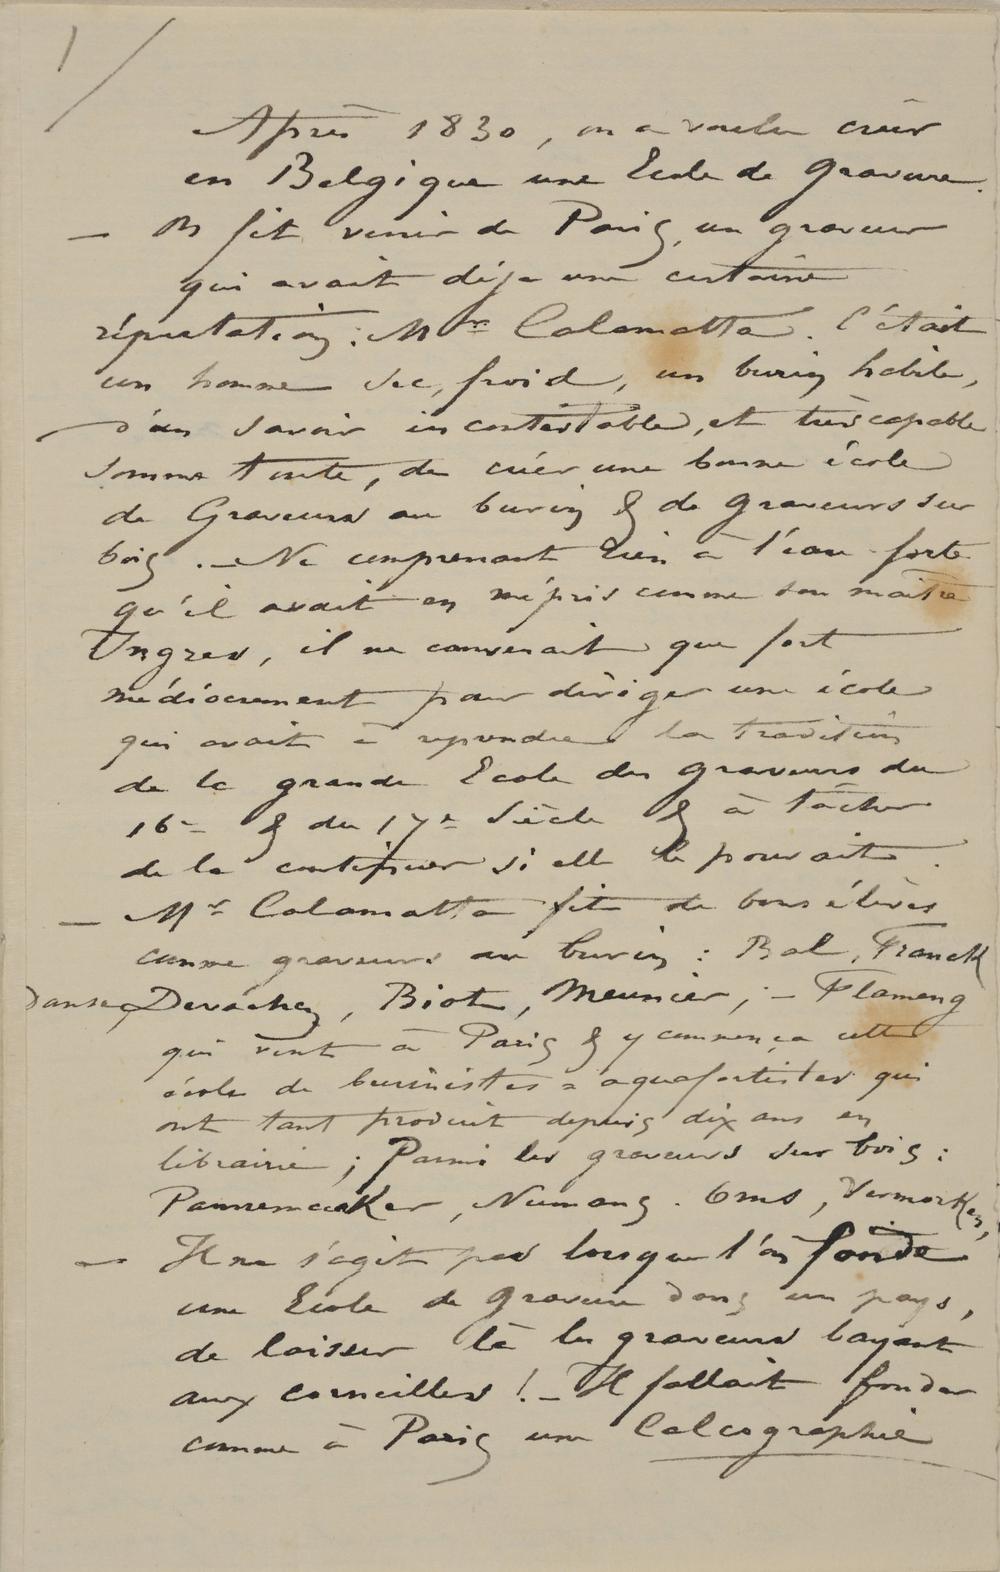 1/
Après 1830, on a voulu créer
en Belgique une Ecole de Gravure.
— On fit venir de Paris, un graveur
qui avait déja une certaine
réputation : Mr Calamatta. C'était
un homme sec, froid, un burin habile,
d'un savoir incontestable, et très capable
somme toute, de créer une bonne école
de Graveurs au burin & de graveurs sur
bois. — Ne comprenant rien à l'eau-forte
qu'il avait en mépris comme son maître
Ingres, il ne convenait que fort
médiocrement pour diriger une école
qui avait à reprendre la tradition
de la grande Ecole des graveurs du
16e & du 17e Siècle & à tâcher
de la continuer si elle le pouvait.
— Mr Calamatta fit de bons élèves
comme graveurs au burin : Bal, Franck
Danse, Devachez, Biot, Meunier, ; — Flameng
qui vint à Paris & y commença cette
école de burinistes = aquafortistes qui
ont tant produit depuis dix ans en
librairie ; Parmi les graveurs sur bois :
Pannemaeker, Numans. Oms, Vermorken,
— Il ne s'agit pas lorsque l'on fonde
une Ecole de Gravure dans un pays,
de laisser là les graveurs bayant
aux corneilles ! — Il fallait fonder
comme à Paris une Calcographie